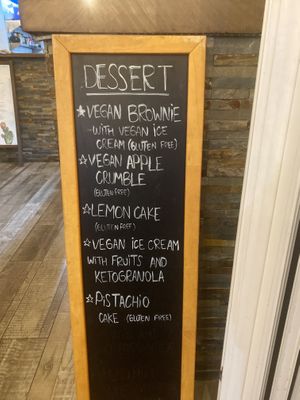 DESSERT
☆VEGAN BROWNIE
-WITH VEGAN ICE
CREAM (GLUTEN FREE)
☆VEGAN APPLE
CRUMBLE
(GLUTEN FREE)
☆LEMON CAKE
(GLUTEN FREE)
☆VEGAN ICE CREAM
WITH FRUITS AND
KETOGRANOLA
☆PISTACHIO
CAKE (GLUTEN FREE)